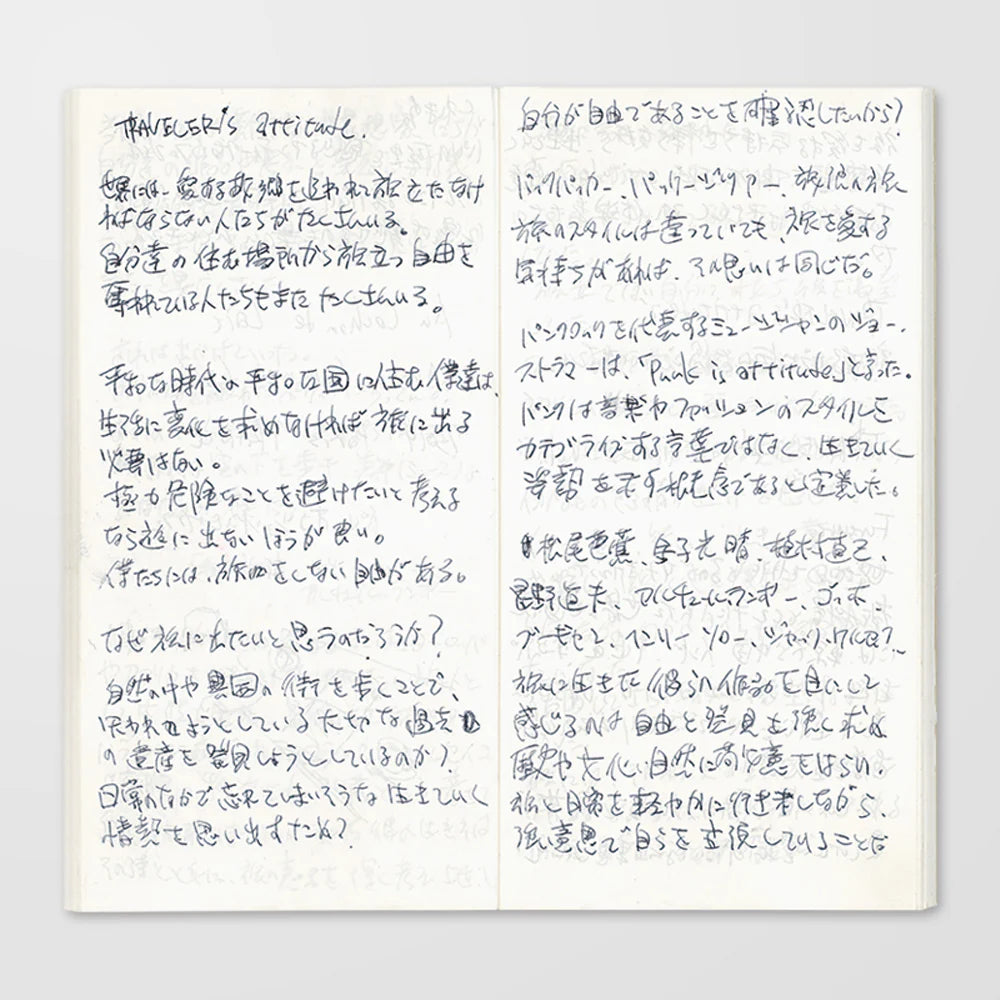 TRAVELER's attitude.
世界には、愛する故郷を追われ旅立たなけ
ればならない人たちがたくさんいる。
自分達の住む場所から旅立つ自由を
奪われている人たちもまたたくさんいる。
平和な時代の平和な国に住む僕達は、
生活に変化を求めなければ旅に出る
必要はない。
極力危険なことを避けたいと考える
なら旅に出ないほうが良い。
僕たちには、旅をしない自由がある。
なぜ旅に出たいと思うのだろうか?
自然の中や異国の街を歩くことで、
失われようとしている大切な過去
の遺産を発見しようとしているのか?
日常のなかで忘れてしまいそうな生きていく
情熱を思い出すため?
自分が自由であることを確認したいから?
バックパッカー、パッケージツアー、放浪の旅
旅のスタイルは違っていても、旅を愛する
気持ちがあれば、その思いは同じだ。
パンクロックを代表するミュージシャンのジョー・
ストラマーは、「Punk is attitude」と言った。
パンクは音楽やファッションのスタイルを
カテゴライズする言葉ではなく、生きていく
姿勢を示す概念であると定義した。
松尾芭蕉、金子光晴、植村直己、
星野道夫、アルチュール・ランボー、ゴッホ、
ブーギャヒン、ヘンリー・ソロー、ジャック・ケルアック…
旅に生きた彼らの作品を目にして
感じるのは自由と発見を強く求め
歴史や文化、自然に敬意をはらい、
旅と日常を軽やかに行き来しながら
強い意思で自らを主張していることだ